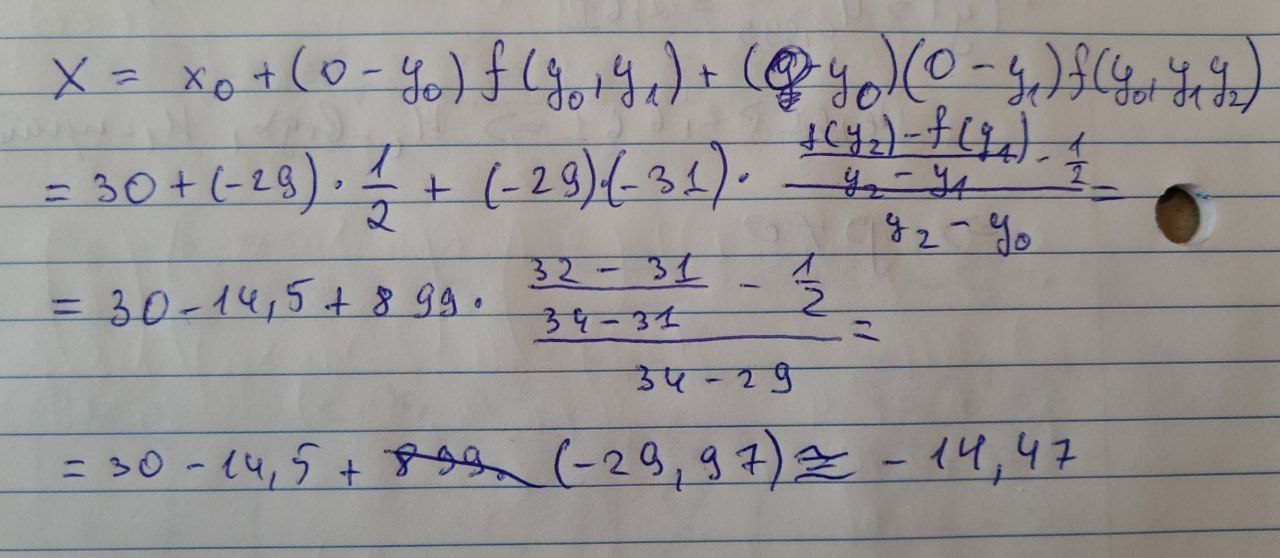 X = x₀ + (0 - y₀) f(y₀, y₁) + (0 - y₀)(0 - y₁) f(y₀, y₁ y₂)
= 30 + (-29) · 1/2 + (-29)·(-31) · ((f(y₂) - f(y₁))/(y₂ - y₁) - 1/2)/(y₂ - y₀) =
= 30 - 14,5 + 899 · ((32 - 31)/(34 - 31) - 1/2)/(34 - 29) =
= 30 - 14,5 + 899 · (-29,97) ≅ -14,47